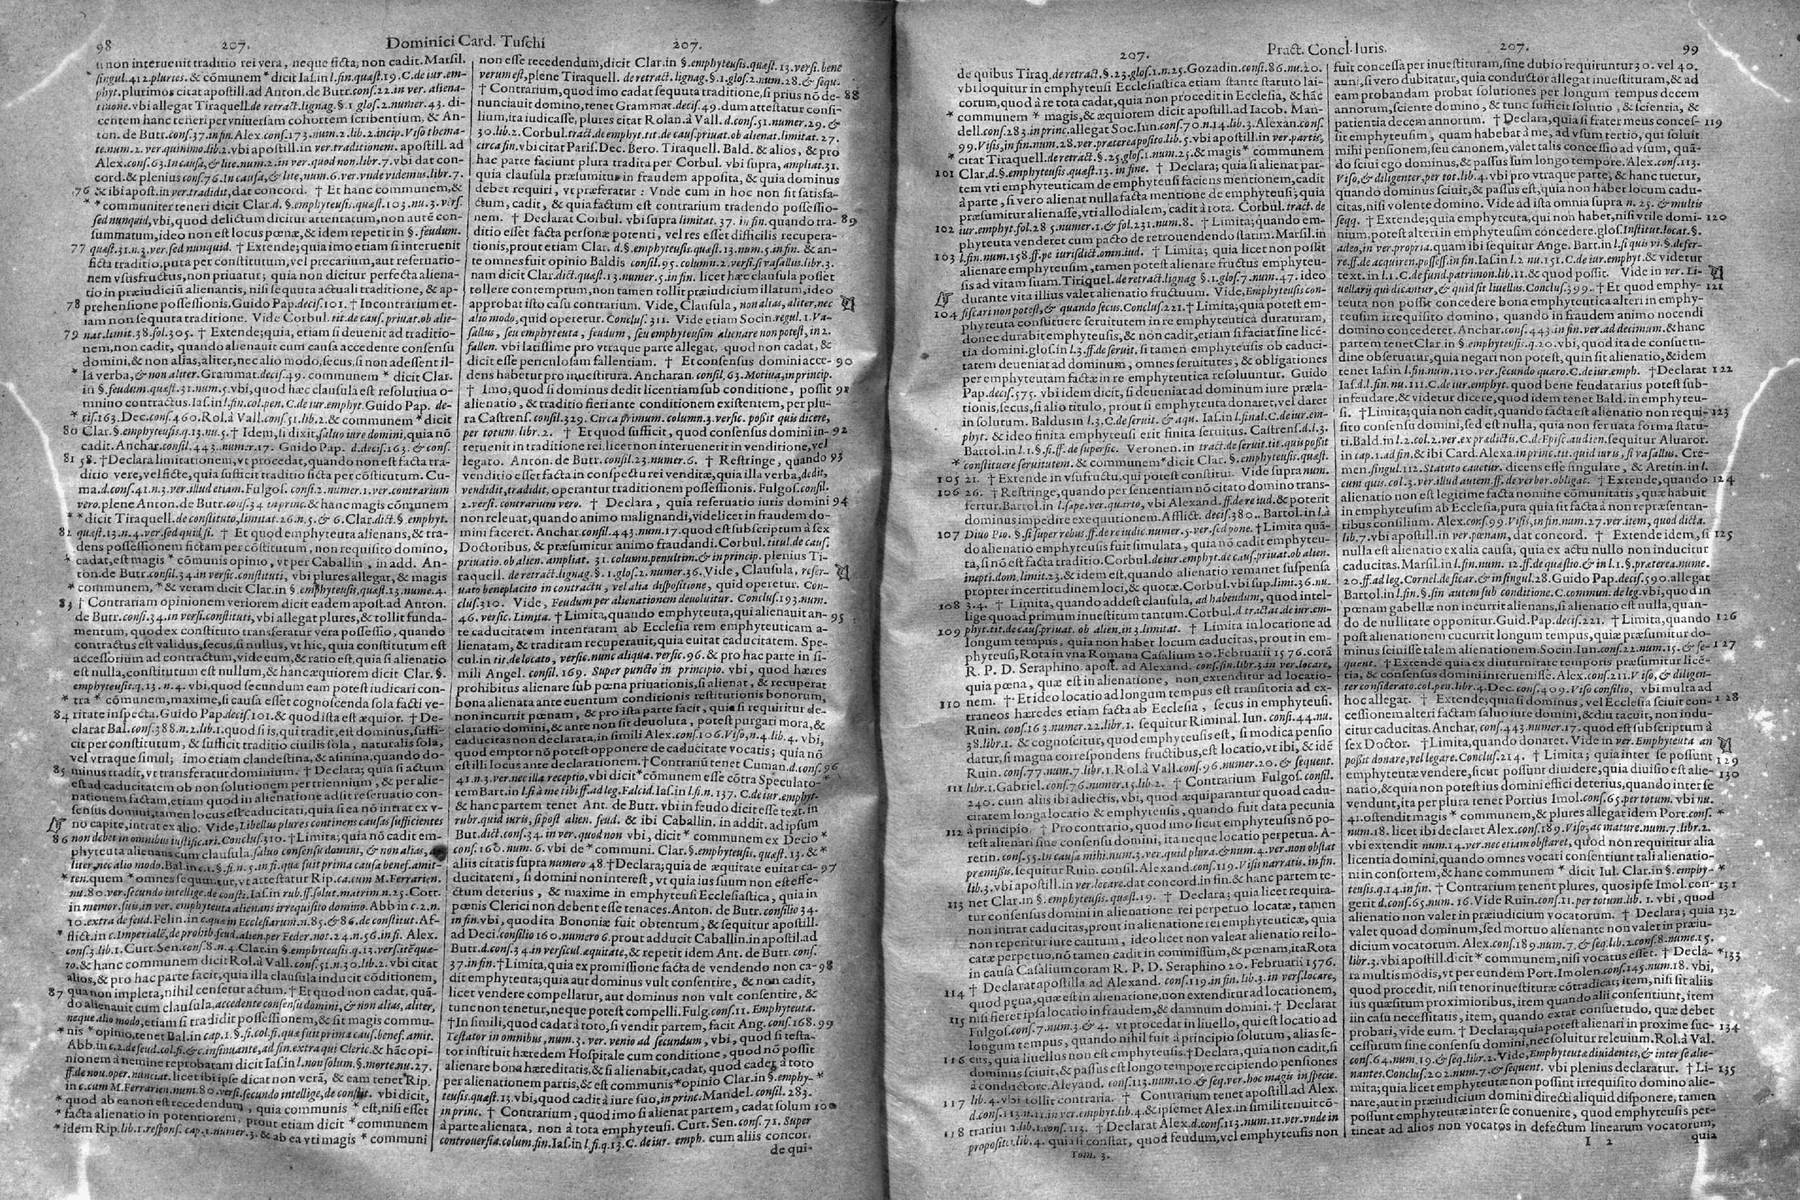 98 207. Dominici Card. Tuschi 207.
non interuenit traditio rei vera, neque ficta, non cadit. Marsil.
singul. 412. plures. & cōmunem * dicit Ias. in l. fin. quæst. 19. C. de iur. em-
phyt. plurimos citat apostill. ad Anton. de Butr. conf. 22. in ver. aliena-
tione. vbi allegat Tiraquell. de retract. lignag. §. 1. glos. 2. numer. 43. di-
centem hanc teneri per vniuersam cohortem scribentium, & An-
ton. de Butr. cons. 37. in fin. Alex. cons. 173. num. 2. lib. 2. incip. Viso thema-
te. num. 2. ver. quinimo. lib. 2. vbi apostill. in ver. traditionem. apostill. ad
Alex. cons. 63. In causa, & lite. num. 2. in ver. quod non. libr. 7. vbi dat con-
cord. & plenius cons. 76. In causa, & lite, num. 6. ver. vnde videmus. libr. 7.
76 & ibi apost. in ver. tradidit, dat concord. † Et hanc communem, &
* * communiter teneri dicit Clar. d. §. emphyteusis. quæst. 103. nu. 3. vers.
sed nunquid, vbi, quod delictum dicitur attentatum, non autē con-
summatum, ideo non est locus pœnæ, & idem repetit in §. feudum.
77 quæst. 31. n. 3. ver. sed nunquid. † Extende; quia imo etiam si interuenit
ficta traditio, puta per constitutum, vel precarium, aut reseruatio-
nem vsusfructus, non priuatur; quia non dicitur perfecta aliena-
tio in præiudiciū alienantis, nisi sequuta actuali traditione, & ap-
78 prehensione possessionis. Guido Pap. decis. 101. † In contrarium et-
iam non sequuta traditione. Vide Corbul. tit. de caus. priuat. ob alie-
79 nat. limit. 38. fol. 305. † Extende; quia, etiam si deuenit ad traditio-
nem, non cadit, quando alienauit cum causa accedente consensu
domini, & non alias, aliter, nec alio modo, secus, si non adessent il-
* la verba, & non aliter. Grammat. decis. 49. communem * dicit Clar.
in §. feudum. quæst. 31. num. 5. vbi, quod hæc clausula est resolutiua o-
mnino contractus. Ias. in l. fin. col. pen. C. de iur. emphyt. Guido Pap. de-
* cis. 163. Dec. cons. 460. Rol. à Vall. cons. 51. lib. 2. & communem * dicit
80 Clar. §. emphyteusis. q. 13. nu. 5. † Idem, si dixit, saluo iure domini, quia nō
cadit. Anchar. consil. 443. numer. 17. Guido Pap. d. decis. 163. & cons.
81 58. † Declara limitationem, vt procedat, quando non est facta tra-
ditio vere, vel ficte, quia sufficit traditio ficta per cōstitutum. Cu-
ma. d. cons. 41. n. 3. ver. illud etiam. Fulgos. cons. 2. numer. 1. ver. contrarium
vero. plene Anton. de Butr. cons. 34. in princ. & hanc magis cōmunem
* * dicit Tiraquell. de constituto, limitat. 26. n. 5. & 6. Clar. dict. §. emphyt.
82 quæst. 13. n. 4. ver. sed quid si. † Et quod emphyteuta alienans, & tra-
dens possessionem fictam per cōstitutum, non requisito domino,
* cadat, est magis * cōmunis opinio, vt per Caballin. in add. An-
ton. de Butr. consil. 34. in versic. constituti, vbi plures allegat, & magis
* communem, * & veram dicit Clar. in §. emphyteusis, quæst. 13. nume. 4.
83 † Contrariam opinionem veriorem dicit eadem apost. ad Anton.
de Butr. cons. 34. in versi. constituti, vbi allegat plures, & tollit funda-
mentum, quod ex constituto transferatur vera possessio, quando
contractus est validus, secus, si nullus, vt hic, quia constitutum est
accessorium ad contractum, vide eum, & ratio est, quia si alienatio
est nulla, constitutum est nullum, & hanc æquiorem dicit Clar. §.
emphyteusis. q. 13. n. 4. vbi, quod secundum eam potest iudicari con-
* tra * cōmunem, maxime, si causa esset cognoscenda sola facti ve-
84 ritate inspecta. Guido Pap. decis. 101. & quod ista est æquior. † De-
clarat Bal. cons. 388. n. 2. lib. 1. quod si is, qui tradit, est dominus, suffi-
cit per constitutum, & sufficit traditio ciuilis sola, naturalis sola,
vel vtraque simul; imo etiam clandestina, & asinina, quando do-
85 minus tradit, vt transferatur dominium. † Declara; quia si actum
est ad caducitatem ob non solutionem per triennium, & per alie-
nationem factam, etiam quod in alienatione adsit reseruatio con-
sensus domini, tamen locus est caducitati, quia si ea nō intrat ex v-
no capite, intrat ex alio. Vide, Libellus plures continens causas sufficientes
86 non debet in omnibus iustificari. Conclus. 310. † Limita; quia nō cadit em-
phyteuta alienans cum clausula, saluo consensu domini, & non alias, a-
liter, nec alio modo. Bal. in c. 1. §. fi. n. 5. in fi. qua fuit prima causa benef. amit.
* ten. quem * omnes sequuntur, vt attestatur Rip. ca. cum M. Ferrarien.
nu. 80. ver. secundo intellige. de consti. Ias. in rub. ff. solut. matrim. n. 25. Cort.
in memor. suis, in ver. emphyteuta alienans irrequisito domino. Abb. in c. 2. n.
10. extra de feud. Felin. in c. quæ in Ecclesiarum. n. 85. & 86. de constitut. Af-
* flict. in c. Imperialē, de prohib. feud. alien. per Feder. not. 24. n. 56. in fi. Alex.
cons. 3. lib. 1. Curt. Sen. cons. 8. n. 4. Clar. in §. emphyteusis. q. 13. versi. tē quæ-
ro. & hanc communem dicit Rol. à Vall. cons. 51. n. 30. lib. 2. vbi citat
alios, & pro hac parte facit, quia illa clausula inducit cōditionem,
87 qua non impleta, nihil censetur actum. † Et quod non cadat, quā-
do alienauit cum clausula, accedente consensu domini, & non alias, aliter,
neque alio modo, etiam si tradidit possessionem, & sit magis commu-
* nis * opinio, tenet Bal. in cap. 1. §. si. col. fi. quæ fuit prima caus. benef. amit.
Abb. in c. 2. de feud. col. fi. & c. insinuante, ad fin. extra qui Cleric. & hāc opi-
nionem à nemine reprobatam dicit Ias. in l. non solum. §. morte. nu. 27.
ff. de nou. oper. nunciat. licet ibi ipse dicat non verā, & eam tenet Rip.
in c. cum M. Ferrarien. num. 80. versi. secundo intellige, de constit. vbi dicit,
* quod ab ea non est recedendum, quia communis * est, nisi esset
* facta alienatio in potentiorem, prout etiam dicit * communem
* idem Rip. lib. 1. respons. cap. 1. numer. 3. & ab ea vti magis * communi
non esse recedendum, dicit Clar. in §. emphyteusis. quæst. 13. versi. bene
verum est, plene Tiraquell. de retract. lignag. §. 1. glos. 2. num. 28. & sequ.
† Contrarium, quod imo cadat sequuta traditione, si prius nō de- 88
nunciauit domino, tenet Grammat. decis. 49. dum attestatur consi-
lium, ita iudicasse, plures citat Rolan. à Vall. d. cons. 51. numer. 29. &
30. lib. 2. Corbul. tract. de emphyt. tit. de caus. priuat. ob alienat. limitat. 27.
circa fin. vbi citat Paris. Dec. Bero. Tiraquell. Bald. & alios, & pro
hac parte faciunt plura tradita per Corbul. vbi supra, ampliat. 31.
quia clausula præsumitur in fraudem apposita, & quia dominus
debet requiri, vt præferatur: Vnde cum in hoc non sit satisfa-
ctum, cadit, & quia factum est contrarium tradendo possessio-
nem. † Declarat Corbul. vbi supra limitat. 37. in fin. quando tra- 89
ditio esset facta personæ potenti, vel res esset difficilis recupera-
tionis, prout etiam Clar. d. §. emphyteusis. quæst. 13. num. 5. in fin. & an-
te omnes fuit opinio Baldis consil. 95. column. 2. versi. si vasallus. libr. 3.
nam dicit Clar. dict. quæst. 13. numer. 5. in fin. licet hæc clausula posset
tollere contemptum, non tamen tollit præiudicium illatum, ideo
approbat isto casu contrarium. Vide, Clausula, non alias, aliter, nec
alio modo, quid operetur. Conclus. 311. Vide etiam Socin. regul. 1. Va-
sallus, seu emphyteuta, feudum, seu emphyteusim alienare non potest, in 2.
fallen. vbi latissime pro vtraque parte allegat, quod non cadat, &
dicit esse periculosam fallentiam. † Et consensus domini acce- 90
dens habetur pro inuestitura. Ancharan. consil. 63. Motiua, in princip.
† Imo, quod si dominus dedit licentiam sub conditione, possit 91
alienatio, & traditio fieri ante conditionem existentem, per plu-
ra Castrens. consil. 329. Circa primum. column. 3. versic. possit quis dicere,
per totum. libr. 2. † Et quod sufficit, quod consensus domini in- 92
teruenit in traditione rei. licet non interuenerit in venditione, vel
legato. Anton. de Butr. consil. 23. numer. 6. † Restringe, quando 93
venditio esset facta in conspectu rei venditæ, quia illa verba, dedit,
vendidit, tradidit, operantur traditionem possessionis. Fulgos. consil.
2. versi. contrarium vero. † Declara, quia reseruatio iuris domini 94
non releuat, quando animo malignandi, videlicet in fraudem do-
mini faceret. Anchar. consil. 443. num. 17. quod est subscriptum à sex
Doctoribus, & præsumitur animo fraudandi. Corbul. titul. de caus.
priuatio. ob alien. ampliat. 31. column. penultim. & in princip. plenius Ti-
raquell. de retract. lignag. §. 1. glos. 2. numer. 36. Vide, Clausula, reser-
uato beneplacito in contractu, vel alia dispositione, quid operetur. Con-
clus. 310. Vide, Feudum per alienationem deuoluitur. Conclus. 193. num.
46. versic. Limita. † Limita, quando emphyteuta, qui alienauit an- 95
te caducitatem intentatam ab Ecclesia rem emphyteuticam a-
lienatam, & traditam recuperauit, quia euitat caducitatem. Spe-
cul. in tit. de locato, versic. nunc aliqua. versic. 96. & pro hac parte in si-
mili Angel. consil. 169. Super puncto in principio. vbi, quod hæres
prohibitus alienare sub pœna priuationis, si alienat, & recuperat
bona alienata ante euentum conditionis restitutionis bonorum,
non incurrit pœnam, & pro ista parte facit, quia si requiritur de-
claratio domini, & ante non sit deuoluta, potest purgari mora, &
caducitas non declarata, in simili Alex. cons. 106. Viso, n. 4. lib. 4. vbi,
quod emptor nō potest opponere de caducitate vocatis; quia nō
est illi locus ante declarationem. † Contrariū tenet Cuman. d. cons. 96
41. n. 3. ver. nec illa receptio, vbi dicit * cōmunem esse cōtra Speculato- *
rem Bart. in l. si à me tibi ff. ad leg. Falcid. Ias. in l. fi. n. 137. C. de iur. emphyt.
& hanc partem tenet Ant. de Butr. vbi in feudo dicit esse text. in
rubr. quid iuris, si post alien. feud. & ibi Caballin. in addit. ad ipsum
But. dict. cons. 34. in ver. quod non vbi, dicit * communem ex Decio *
cons. 160. num. 6. vbi de * communi. Clar. §. emphyteusis. quæst. 13. & *
aliis citatis supra numero 48. † Declara; quia de æquitate euitat ca- 97
ducitatem, si domini non interest, vt quia ius suum non est effe-
ctum deterius, & maxime in emphyteusi Ecclesiastica, quia in
pœnis Clerici non debent esse tenaces. Anton. de Butr. consilio 34.
in fin. vbi, quod ita Bononiæ fuit obtentum, & sequitur apostill.
ad Deci. consilio 160. numero 6. prout adducit Caballin. in apostil. ad
Butr. d. cons. 34. in versicul. æquitate, & repetit idem Ant. de Butr. cons.
37. in fin. † Limita, quia ex promissione facta de vendendo non ca- 98
dit emphyteuta; quia aut dominus vult consentire, & non cadit,
licet vendere compellatur, aut dominus non vult consentire, &
tunc non tenetur, neque potest compelli. Fulg. cons. 11. Emphyteuta.
† In simili, quod cadat à toto, si vendit partem, facit Ang. cons. 168. 99
Testator in omnibus, num. 3. ver. venio ad secundum, vbi, quod si testa-
tor instituit hæredem Hospitale cum conditione, quod nō possit
alienare bona hæreditatis, & si alienabit, cadat, quod cadet à toto
per alienationem partis, & est communis * opinio Clar. in §. emphy- *
teusis. quæst. 13. vbi, quod cadit à iure suo, in princ. Mandel. consil. 283.
in princ. † Contrarium, quod imo si alienat partem, cadat solum 100
à parte alienata, non à tota emphyteusi. Curt. Sen. cons. 71. Super
controuersia. colum. fin. Ias. in l. fi. q. 13. C. de iur. emph. cum aliis concor.
de qui-
207. Pract. Concl. Iuris. 207. 99
de quibus Tiraq. de retract. §. 23. glos. 1. n. 25. Gozadin. cons. 86. nu. 20.
vbi loquitur in emphyteusi Ecclesiastica etiam stante statuto lai-
corum, quod à re tota cadat, quia non procedit in Ecclesia, & hāc
* communem * magis, & æquiorem dicit apostill. ad Iacob. Man-
dell. cons. 283. in princ. allegat Soc. Iun. cons. 70. n. 14. lib. 3. Alexan. cons.
99. Visis, in fin. num. 28. ver. præterea posito. lib. 5. vbi apostill. in ver. partis,
* citat Tiraquell. de retract. §. 25. glos. 1. num. 25. & magis * communem
101 Clar. d. §. emphyteusis. quæst. 13. in fine. † Declara; quia si alienat par-
tem vti emphyteuticam de emphyteusi faciens mentionem, cadit
à parte, si vero alienat nulla facta mentione de emphyteusi; quia
præsumitur alienasse, vti allodialem, cadit à tota. Corbul. tract. de
102 iur. emphyt. fol. 285. numer. 1. & fol. 231. num. 8. † Limita; quando em-
phyteuta venderet cum pacto de retrouendendo statum. Marsil. in
103 l. fin. num. 158. ff. pe iurisdict. om. iud. † Limita; quia licet non possit
alienare emphyteusim, tamen potest alienare fructus emphyteu-
sis ad vitam suam. Tiriquel. de retract. lignag. §. 1. glos. 7. num. 47. ideo
durante vita illius valet alienatio fructuum. Vide, Emphyteusis con-
104 fiscari non potest, & quando secus. Conclus. 221. † Limita; quia potest em-
phyteuta constituere seruitutem in re emphyteutica duraturam,
donec durabit emphyteusis, & non cadit, etiam si faciat sine licē-
tia domini. glos. in l. 3. ff. de seruit. si tamen emphyteusis ob caduci-
tatem deueniat ad dominum, omnes seruitutes, & obligationes
per emphyteutam factæ in re emphyteutica resoluuntur. Guido
Pap. decis. 575. vbi idem dicit, si deueniat ad dominum iure præla-
tionis, secus, si alio titulo, prout si emphyteuta donaret, vel daret
in solutum. Baldus in l. 3. C. de seruit. & aqu. Ias. in l. final. C. de iur. em-
phyt. & ideo finita emphyteusi erit finita seruitus. Castrens. d. l. 3.
Bartol. in l. 1. §. fi. ff. de superfic. Veronen. in tract. de seruit. tit. quis possit
* constituere seruitutem. & communem * dicit Clar. §. emphyteusis. quæst.
105 21. † Extende in vsufructu, qui potest constitui. Vide supra num.
106 26. † Restringe, quando per sententiam nō citato domino trans-
fertur. Bartol. in l. sæpe. ver. quarto, vbi Alexand. ff. de re iud. & poterit
dominus impedire exequutionem. Afflict. decis. 380. Bartol. in l. à
107 Diuo Pio. §. si super rebus. ff. de re iudic. numer. 5. ver. sed pone. † Limita quā-
do alienatio emphyteusis fuit simulata, quia nō cadit emphyteu-
ta, si nō est facta traditio. Corbul. de iur. emphyt. de caus. priuat. ob alien.
inepti. dom. limit. 23. & idem est, quando alienatio remanet suspensa
propter incertitudinem loci, & quotæ. Corbul. vbi sup. limit. 36. nu.
108 3. 4. † Limita, quando addest clausula, ad habendum, quod intel-
lige quoad primum inuestitum tantum. Corbul. d. tractat. de iur. em-
109 phyt. tit. de caus. priuat. ob alien. in 3. limitat. † Limita in locatione ad
longum tempus, quia non habet locum caducitas, prout in em-
phyteusi, Rota in vna Romana Casalium 20. Februarii 1576. corā
R. P. D. Seraphino. apost. ad Alexand. cons. fin. libr. 3. in ver. locare,
quia pœna, quæ est in alienatione, non extenditur ad locatio-
110 nem. † Et ideo locatio ad longum tempus est transitoria ad ex-
traneos hæredes etiam facta ab Ecclesia, secus in emphyteusi.
Ruin. cons. 163. numer. 22. libr. 1. sequitur Riminal. Iun. cons. 44. nu.
38. libr. 1. & cognoscitur, quod emphyteusis est, si modica pensio
datur, si magna correspondens fructibus, est locatio, vt ibi, & idē
Ruin. cons. 77. num. 7. libr. 1. Rol. à Vall. cons. 96. numer. 20. & sequent.
111 libr. 1. Gabriel. cons. 76. numer. 15. lib. 2. † Contrarium Fulgos. consil.
240. cum aliis ibi adiectis, vbi, quod æquiparantur quoad cadu-
citatem longa locatio & emphyteusis, quando fuit data pecunia
112 à principio. † Pro contrario, quod imo sicut emphyteusis nō po-
test alienari sine consensu domini, ita neque locatio perpetua. A-
retin. cons. 55. In causa mihi. num. 3. ver. quid plura. & num. 4. ver. non obstat
præmissis. sequitur Ruin. consil. Alexand. cons. 119. Visis narratis. in fin.
lib. 3. vbi apostill. in ver. locare. dat concord. in fin. & hanc partem te-
113 net Clar. in §. emphyteusis. quæst. 19. † Declara; quia licet requira-
tur consensus domini in alienatione rei perpetuo locatæ, tamen
non intrat caducitas, prout in alienatione rei emphyteuticæ, quia
non reperitur iure cautum, ideo licet non valeat alienatio rei lo-
catæ perpetuo, nō tamen cadit in commissum, & pœnam, ita Rota
in causa Casalium coram R. P. D. Seraphino 20. Februarii 1576.
114 † Declarat apostilla ad Alexand. cons. 119. in fin. lib. 3. in vers. locare,
quod pœna, quæ est in alienatione, non extenditur ad locationem,
nisi fieret ipsa locatio in fraudem, & damnum domini. † Declarat
115 Fulgos. cons. 7. num. 3. & 4. vt procedat in liuello, qui est locatio ad
longum tempus, quando nihil fuit à principio solutum, alias se-
116 cus, quia liuellus non est emphyteusis. † Declara, quia non cadit, si
dominus sciuit, & passus est longo tempore recipiendo pensiones
à conductore. Aleyand. cons. 113. num. 10. & seq. ver. hoc magis in specie.
117 lib. 4. vbi tollit contraria. † Contrarium tenet apostill. ad Alex.
d. cons. 113. n. 11. in ver. emphyt. lib. 4. & ipsemet Alex. in simili tenuit cō-
118 trarium 2. lib. 1. cons. 113. † Declarat Alex. d. cons. 113. num. 11. ver. vnde in
proposito. lib. 4. quia si constat, quod feudum, vel emphyteusis non
Tom. 3.
fuit concessa per inuestituram, sine dubio requiruntur 30. vel 40.
anni, si vero dubitatur, quia conductor allegat inuestituram, & ad
eam probandam probat solutiones per longum tempus decem
annorum, sciente domino, & tunc sufficit solutio, & scientia, &
patientia decem annorum. † Declara, quia si frater meus conces- 119
sit emphyteusim, quam habebat à me, ad vsum tertio, qui soluit
mihi pensionem, seu canonem, valet talis concessio ad vsum, quā-
do sciui ego dominus, & passus sum longo tempore. Alex. cons. 113.
Viso, & diligenter, per tot. lib. 4. vbi pro vtraque parte, & hanc tuetur,
quando dominus sciuit, & passus est, quia non habet locum cadu-
citas, nisi volente domino. Vide ad ista omnia supra n. 25. & multis
seqq. † Extende; quia emphyteuta, qui non habet, nisi vtile domi- 120
nium, potest alteri in emphyteusim concedere. glos. Institut. locat. §.
adeo, in ver. propria. quam ibi sequitur Ange. Bart. in l. si quis vi §. differ-
re. ff. de acquiren. possess. in fin. Ias. in l. 2. nu. 151. C. de iur. emphyt. & videtur
text. in l. 1. C. de fund. patrimon. lib. 11. & quod possit. Vide in ver. Li-
uellarij qui dicantur, & quid sit liuellus. Conclus. 399. † Et quod emphy- 121
teuta non possit concedere bona emphyteutica alteri in emphy-
teusim irrequisito domino, quando in fraudem animo nocendi
domino concederet. Anchar. cons. 443. in fin. ver. ad decimum. & hanc
partem tenet Clar. in §. emphyteusis. q. 20. vbi, quod ita de consuetu-
dine obseruatur, quia negari non potest, quin sit alienatio, & idem
tenet Ias. in l. fin. num. 110. ver. secundo quæro. C. de iur. emph. † Declarat 122
Ias. d. l. fin. nu. 111. C. de iur. emphyt. quod bene feudatarius potest sub-
infeudare, & videtur dicere, quod idem tenet Bald. in emphyteu-
si. † Limita; quia non cadit, quando facta est alienatio non requi- 123
sito consensu domini, sed est nulla, quia non seruata forma statu-
ti. Bald. in l. 2. col. 2. ver. ex prædictis. C. de Episc. audien. sequitur Aluarot.
in cap. 1. ad fin. & ibi Card. Alexa. in princ. tit. quid iuris, si vasallus. Cre-
men. singul. 112. Statuto cauetur. dicens esse singulare, & Aretin. in l.
cum quis. col. 3. ver. illud autem. ff. de verbor. obligat. † Extende, quando 124
alienatio non est legitime facta nomine cōmunitatis, quæ habuit
in emphyteusim ab Ecclesia, puta quia sit facta à non repræsentan-
tibus consilium. Alex. cons. 99. Visis, in fin. num. 27. ver. item, quod dicta.
lib. 7. vbi apostill. in ver. pœnam, dat concord. † Extende idem, si 125
nulla est alienatio ex alia causa, quia ex actu nullo non inducitur
caducitas. Marsil. in l. fin. num. 12. ff. de quæstio. & in l. 1. §. præterea. nume.
20. ff. ad leg. Cornel. de sicar. & in singul. 28. Guido Pap. decis. 590. allegat
Bartol. in l. fin. §. sin autem sub conditione. C. commun. de leg. vbi, quod in
pœnam gabellæ non incurrit alienans, si alienatio est nulla, quan-
do de nullitate opponitur. Guid. Pap. decis. 221. † Limita, quando 126
post alienationem cucurrit longum tempus, quia præsumitur do-
minus sciuisse talem alienationem. Socin. Iun. cons. 22. num. 15. & se- 127
quent. † Extende quia ex diuturnitate temporis præsumitur licē-
tia, & consensus domini interuenisse. Alex. cons. 211. Viso, & diligen-
ter considerato. col. pen. libr. 4. Dec. cons. 409. Viso consilio, vbi multa ad
hoc allegat. † Extende; quia si dominus, vel Ecclesia sciuit con- 128
cessionem alteri factam saluo iure domini, & diu tacuit, non indu-
citur caducitas. Anchar. cons. 443. num. 17. quod est subscriptum à
sex Doctor. † Limita, quando donaret. Vide in ver. Emphyteuta an
possit donare, vel legare. Conclus. 214. † Limita; quia inter se possunt 129
emphyteutæ vendere, sicut possunt diuidere, quia diuisio est alie- 130
natio, & quia non potest ius domini effici deterius, quando inter se
vendunt, ita per plura tenet Portius Imol. cons. 65. per totum. vbi nu.
41. ostendit magis * communem, & plures allegat idem Port. cons. *
num. 18. licet ibi declaret Alex. cons. 189. Viso, ac mature. num. 7. libr. 2.
vbi extendit num. 14. ver. nec etiam obstaret, quod non requiritur alia
licentia domini, quando omnes vocati consentiunt tali alienatio-
ni in consortem, & hanc communem * dicit Iul. Clar. in §. emphy- *
teusis. q. 14. in fin. † Contrarium tenent plures, quos ipse Imol. con- 131
gerit d. cons. 65. num. 16. Vide Ruin. cons. 11. per totum. lib. 1. vbi, quod
alienatio non valet in præiudicium vocatorum. † Declara; quia 132
valet quoad dominum, sed mortuo alienante non valet in præiu-
dicium vocatorum. Alex. cons. 189. num. 7. & seq. lib. 2. cons. 8. nume. 15.
libr. 3. vbi apostill. dicit * communem, nisi vocatus esset. † Decla- *133
ra multis modis, vt per eundem Port. Imolen. cons. 145. num. 18. vbi,
quod procedit, nisi tenor inuestituræ cōtradicat; item, nisi sit aliis
ius quæsitum proximioribus, item quando alii consentiunt, item
in casu necessitatis, item, quando extat consuetudo, quæ debet
probari, vide eum. † Declara; quia potest alienari in proxime suc- 134
cessurum sine consensu domini, nec soluitur releuium. Rol. à Val.
cons. 64. num. 19. & seq. libr. 2. Vide, Emphyteuta diuidentes, & inter se alie-
nantes. Conclus. 202. num. 7. & sequent. vbi plenius declaratur. † Li- 135
mita; quia licet emphyteutæ non possint irrequisito domino alie-
nare, aut in præiudicium domini directi aliquid disponere, tamen
possunt emphyteutæ inter se conuenire, quod emphyteusis per-
tineat ad alios non vocatos in defectum linearum vocatorum,
I 2 quia